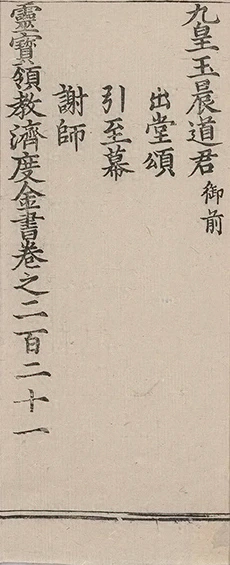 九皇玉晨道君御前
出堂頌
引至幕
謝師
靈寶領教濟度金書卷之二百二十一